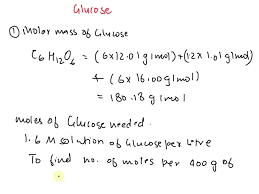 Glucose
① Molar mass of Glucose
C6 H12 O6 = (6x12.01 g/mol) + (12x 1.01 g/mol)
+ (6x 16.00 g/mol)
= 180.18 g/mol
moles of Glucose needed.
1.6 M solution of Glucose per litre
To find no. of moles per 400 g of